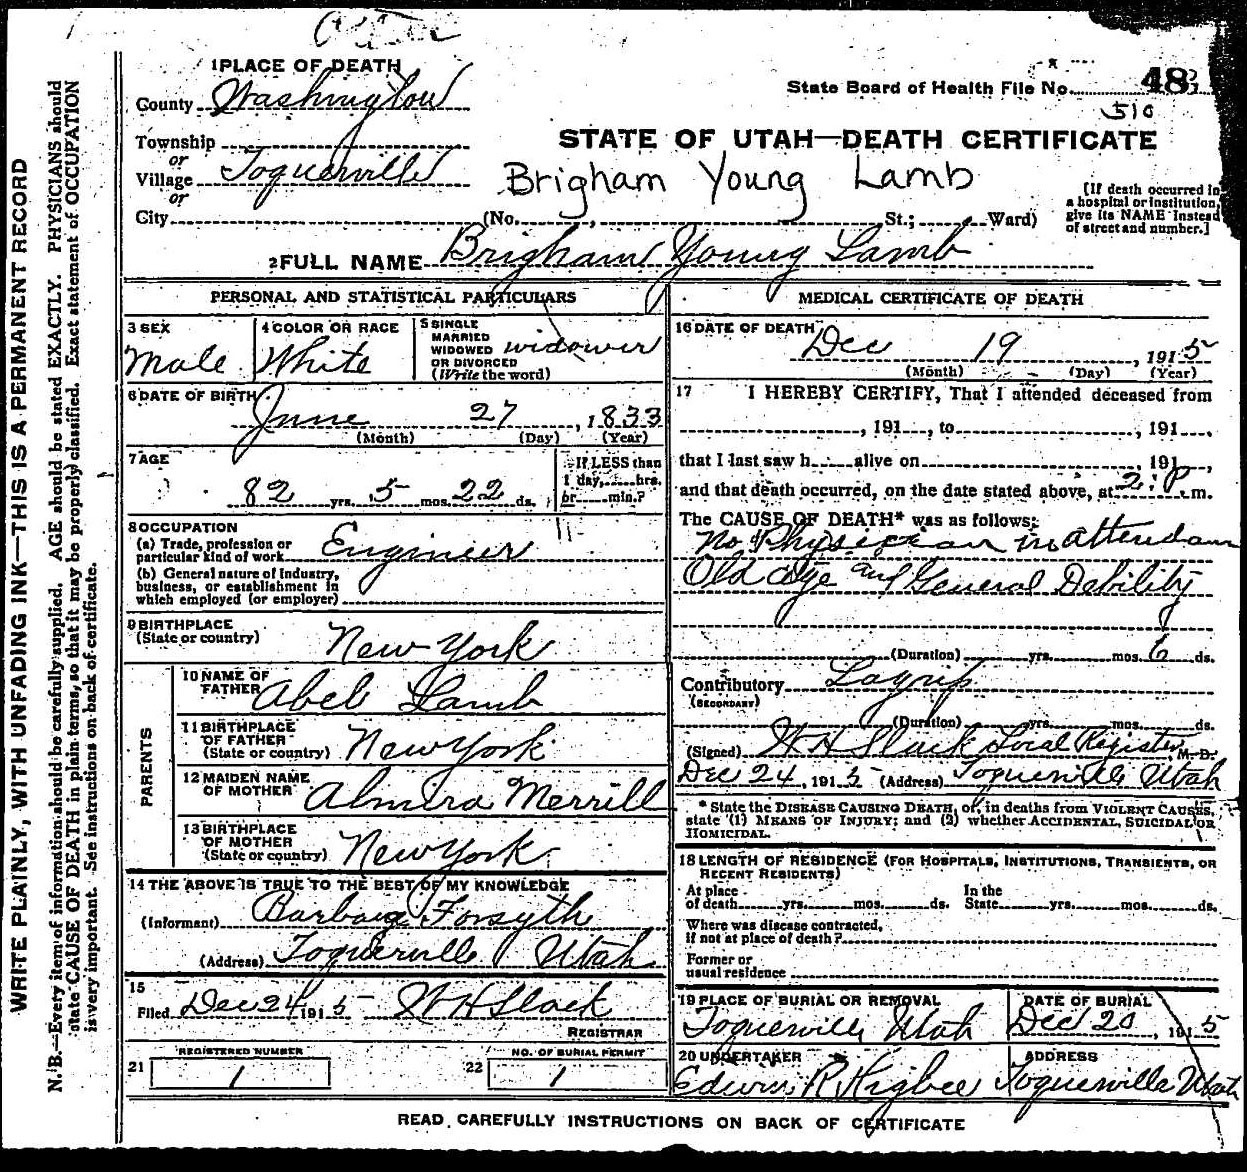 1 PLACE OF DEATH
County Washington
State Board of Health File No. 48
510
Township
or
Village Toquerville
or
City
STATE OF UTAH—DEATH CERTIFICATE
Brigham Young Lamb
(No. , St.; Ward)
[If death occurred in
a hospital or institution,
give its NAME instead
of street and number.]
2 FULL NAME Brigham Young Lamb
PERSONAL AND STATISTICAL PARTICULARS
3 SEX
Male
4 COLOR OR RACE
White
5 SINGLE
MARRIED
WIDOWED
OR DIVORCED
(Write the word)
widower
6 DATE OF BIRTH
June 27, 1833
(Month) (Day) (Year)
7 AGE
82 yrs. 5 mos. 22 ds.
If LESS than
1 day, hrs.
or min.?
8 OCCUPATION
(a) Trade, profession or
particular kind of work Engineer
(b) General nature of industry,
business, or establishment in
which employed (or employer)
9 BIRTHPLACE
(State or country) New York
PARENTS
10 NAME OF
FATHER Abel Lamb
11 BIRTHPLACE
OF FATHER
(State or country) New York
12 MAIDEN NAME
OF MOTHER Almira Merrill
13 BIRTHPLACE
OF MOTHER
(State or country) New York
14 THE ABOVE IS TRUE TO THE BEST OF MY KNOWLEDGE
(Informant) Barbara Forsyth
(Address) Toquerville Utah
15
Filed Dec 24 1915 W H Slack
REGISTRAR
21 REGISTERED NUMBER
1
22 NO. OF BURIAL PERMIT
1
MEDICAL CERTIFICATE OF DEATH
16 DATE OF DEATH
Dec 19, 1915
(Month) (Day) (Year)
17 I HEREBY CERTIFY, That I attended deceased from
, 191 , to , 191 ,
that I last saw h alive on , 191 ,
and that death occurred, on the date stated above, at 2 P. m.
The CAUSE OF DEATH* was as follows:
No Physician in attendan
Old age and General Debility
(Duration) yrs. mos. 6 ds.
Contributory Lagrip
(SECONDARY)
(Duration) yrs. mos. ds.
(Signed) W H Slack Local Register, M. D.
Dec 24, 1915 (Address) Toquerville Utah
* State the DISEASE CAUSING DEATH, or, in deaths from VIOLENT CAUSES,
state (1) MEANS OF INJURY; and (2) whether ACCIDENTAL, SUICIDAL or
HOMICIDAL.
18 LENGTH OF RESIDENCE (FOR HOSPITALS, INSTITUTIONS, TRANSIENTS, OR
RECENT RESIDENTS)
At place In the
of death yrs. mos. ds. State yrs. mos. ds.
Where was disease contracted,
if not at place of death?
Former or
usual residence
19 PLACE OF BURIAL OR REMOVAL
Toquerville Utah
DATE OF BURIAL
Dec 20, 1915
20 UNDERTAKER
Edwin R Higbee
ADDRESS
Toquerville Utah
READ CAREFULLY INSTRUCTIONS ON BACK OF CERTIFICATE
WRITE PLAINLY, WITH UNFADING INK—THIS IS A PERMANENT RECORD
N. B.—Every item of information should be carefully supplied. AGE should be stated EXACTLY. PHYSICIANS should
state CAUSE OF DEATH in plain terms, so that it may be properly classified. Exact statement of OCCUPATION
is very important. See instructions on back of certificate.